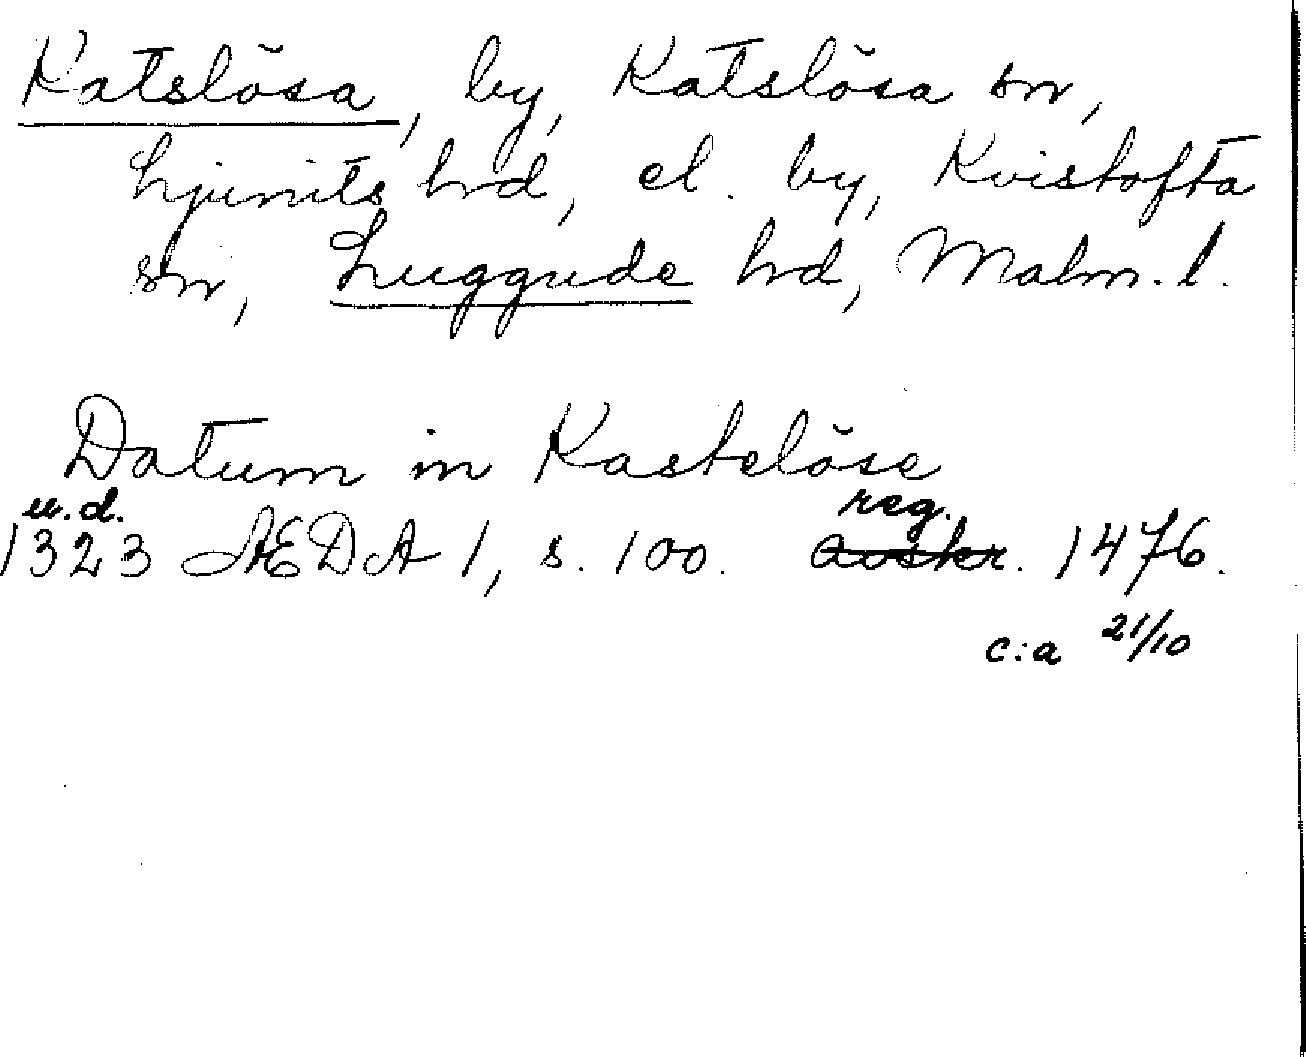 Katslösa, by, Katslösa sn,
Ljunits hrd, el. by, Kvistofta
sn, Luggude hrd, Malm. l.
Datum in Kastelöse
u.d. reg.
1323 AEDA 1, s. 100. avskr. 1476.
c:a 21/10